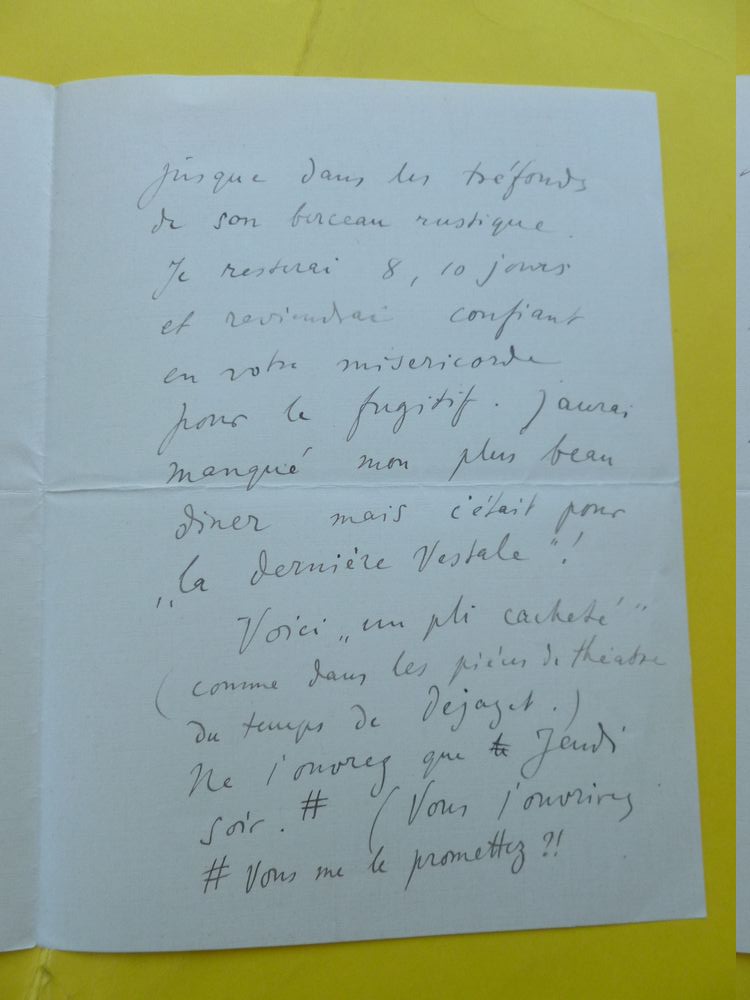 jusque dans les tréfonds
de son berceau rustique.
Je resterai 8, 10 jours
et reviendrai confiant
en votre misericorde
pour le fugitif. J'aurai
manqué mon plus beau
diner mais c'était pour
„la dernière Vestale"!
Voici „un pli cacheté"
(comme dans les pièces de théatre
du temps de Dejazet.)
Ne l'ouvrez que Jeudi
soir. # (Vous l'ouvrirez
# Vous me le promettez ?!